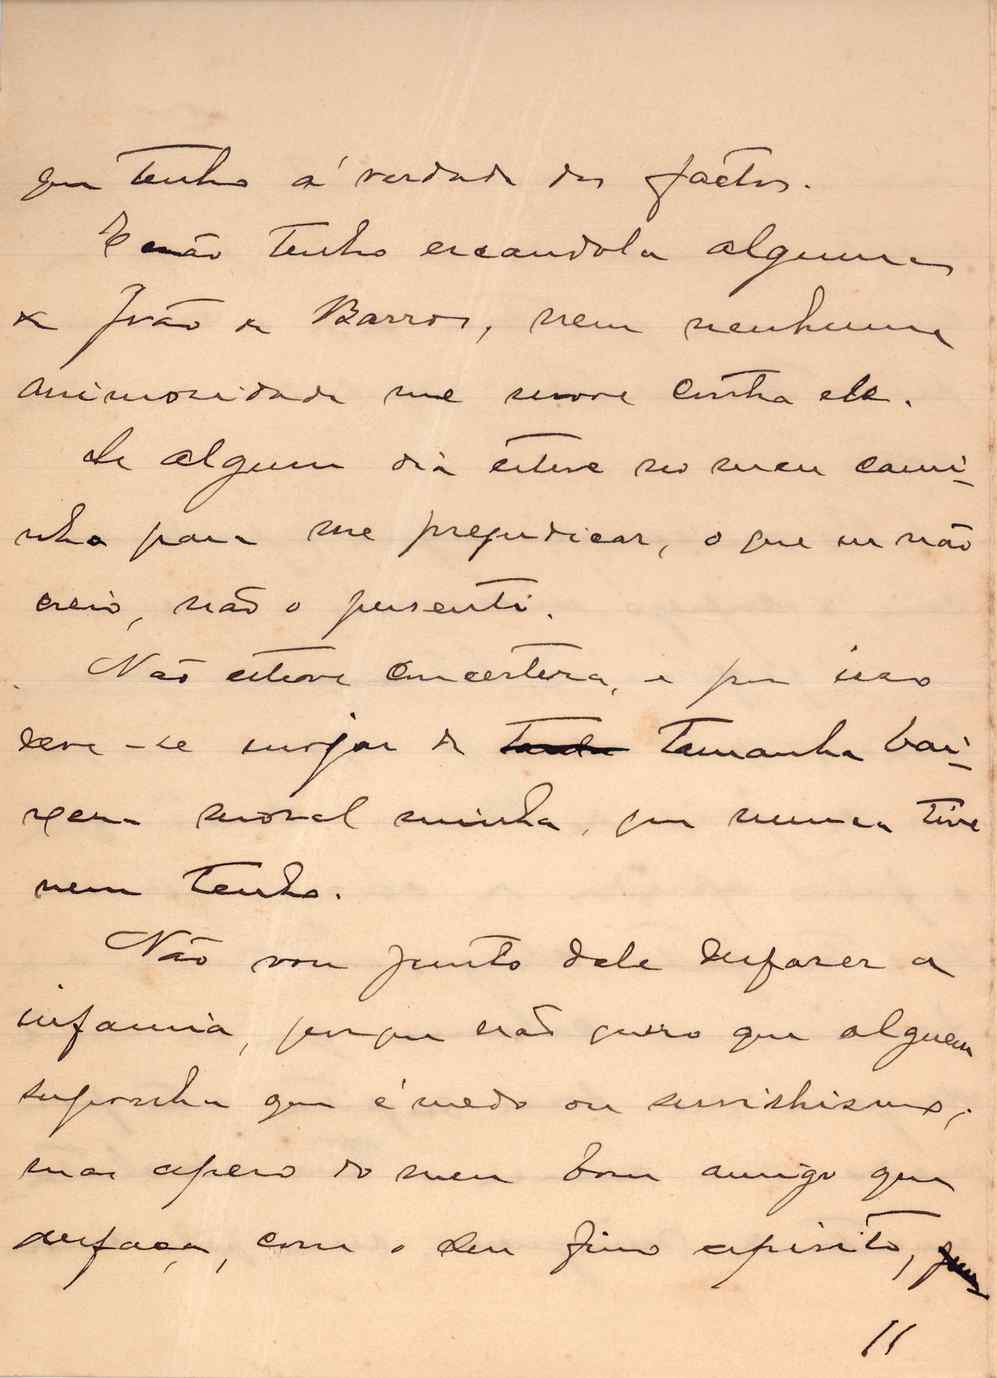 que tenho á verdade dos factos.
E não tenho escandola alguma
de João de Barros, nem nenhuma
animosidade me move contra ele.
Se algum dia esteve no meu cami-
nho para me prejudicar, o que eu não
creio, não o pressenti.
Não esteve com certeza, e por isso
deve-se enojar de tanta tamanha bai-
xesa moral minha, que nunca tive
nem tenho.
Não vou junto dele desfazer a
infamia, porque não quero que alguem
suponha que é medo ou servilhismo;
mas espero do meu bom amigo que
desfaça, com o seu fino espirito,
11